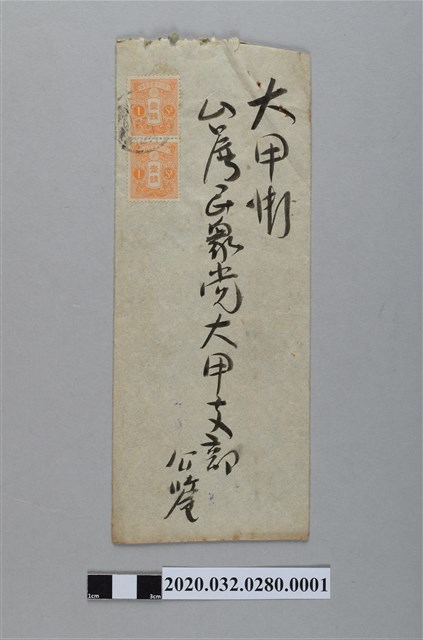 大甲街
台湾民衆党大甲支部
公鑒
2020.032.0280.0001
1cm
3cm